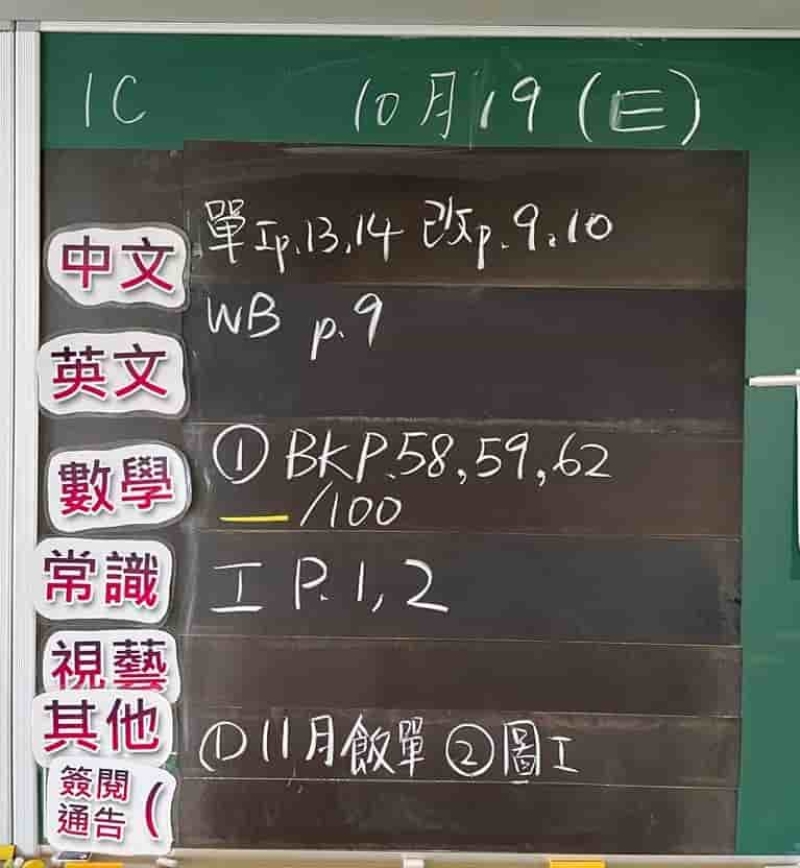 1C 10月19(三)
中文 單工p.13,14 改p.9.10
英文 WB p.9
數學 ① BKP.58,59,62
__/100
常識 工 P.1,2
視藝
其他 ①11月飯單 ②圖工
簽閱
通告 (